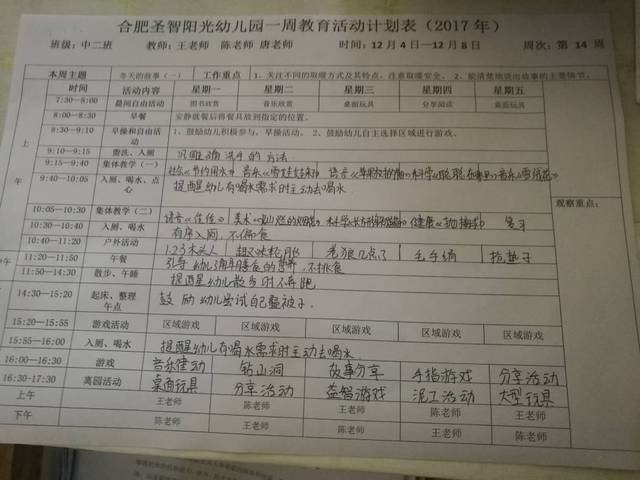 合肥圣智阳光幼儿园一周教育活动计划表（2017年）
班级：中二班 教师：王老师 陈老师 唐老师 时间：12月4日—12月8日 周次：第 14 周
本周主题 冬天的故事（一） 工作重点 1、关注不同的取暖方式及其特点，注意取暖安全。 2、能清楚地说出故事的主要情节。
时间 活动内容 星期一 星期二 星期三 星期四 星期五
7:30—8:00 晨间自由活动 图书欣赏 音乐欣赏 桌面玩具 分享阅读 桌面玩具
8:00—8:30 早餐 安静就餐后将餐具放到指定的位置。
8:30—9:10 早操和自由活动 1、鼓励幼儿积极参与，早操活动。 2、鼓励幼儿自主选择区域进行游戏。
上午
9:10—9:15 盥洗、入厕 巩固正确洗手的方法
9:15—9:40 集体教学（一） 社会《节约用水》 音乐
9:40—10:05 入厕、喝水、点心 提醒幼儿有喝水需求时主动去喝水
观察重点：
10:05—10:30 集体教学（二） 语言 美术 科学 健康《抛接球》 复习
10:30—10:40 入厕、喝水 有序入厕，不偏食
10:40—11:20 户外活动 123木头人 老狼几点了 毛毛虫 抢垫子
11:20—11:50 午餐 引导幼儿 膳食的营养，不挑食
11:50—14:30 散步、午睡 提醒幼儿散步时不要跑
14:30—15:20 起床、整理 午点 鼓励幼儿尝试自己叠被子.
15:20—15:55 游戏活动 区域游戏 区域游戏 区域游戏 区域游戏 区域游戏
15:55—16:00 入厕、喝水 提醒幼儿有喝水需求时主动去喝水
16:00—16:30 游戏 音乐律动 钻山洞 故事分享 手指游戏 分享活动
16:30-17:30 离园活动 桌面玩具 分享活动 益智游戏 泥工活动 大型玩具
上午 王老师 陈老师 王老师 陈老师 王老师
下午 陈老师 王老师 陈老师 王老师 陈老师